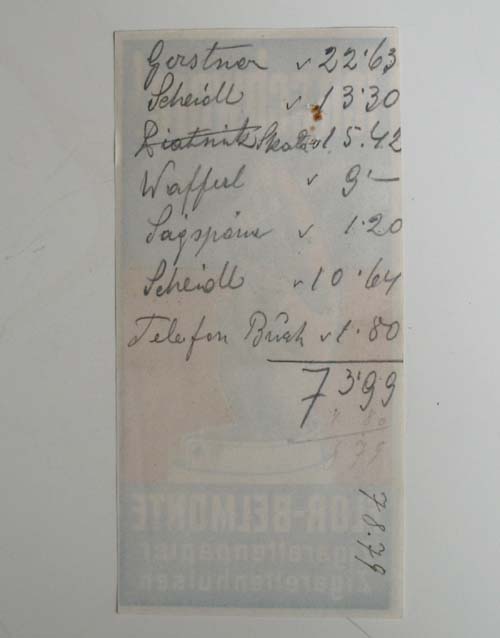 Gerstner v 22·63
Scheidl v 13·30
Piatnik Skala v 15.42
Wafferl v 9·—
Sägspäne v 1·20
Scheidl v 10·64
Telefon Buch v 1·80
73·99
78.79
FLOR-BELMONTE
Zigarettenpapier
Zigarettenhülsen